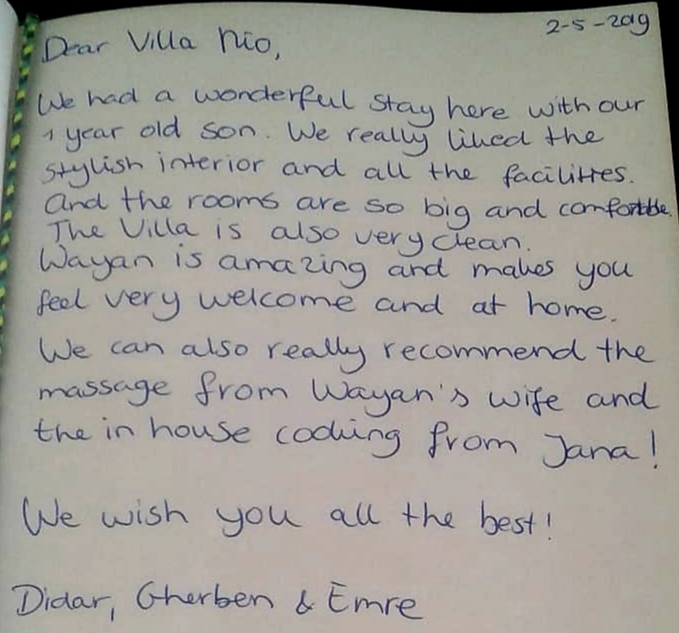 2-5-2019
Dear Villa Nio,
We had a wonderful stay here with our
1 year old son. We really liked the
stylish interior and all the facilities.
And the rooms are so big and comfortable.
The Villa is also very clean.
Wayan is amazing and makes you
feel very welcome and at home.
We can also really recommend the
massage from Wayan's wife and
the in house cooking from Jana!
We wish you all the best!
Didar, Gherben & Emre